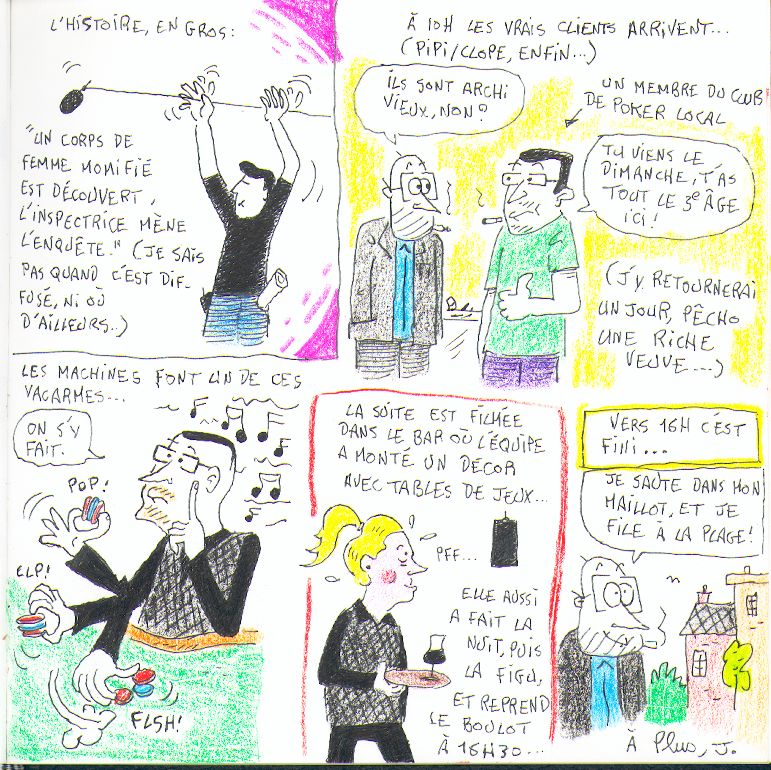 L'HISTOIRE, EN GROS:
"UN CORPS DE
FEMME MOMIFIÉ
EST DÉCOUVERT,
L'INSPECTRICE MÈNE
L'ENQUÊTE." (JE SAIS
PAS QUAND C'EST DIF-
FUSÉ, NI OÙ
D'AILLEURS..)
À 10H LES VRAIS CLIENTS ARRIVENT...
(PIPI/CLOPE, ENFIN...)
ILS SONT ARCHI
VIEUX, NON?
UN MEMBRE DU CLUB
DE POKER LOCAL
TU VIENS LE
DIMANCHE, T'AS
TOUT LE 3e ÂGE
ICI!
(J'Y RETOURNERAI
UN JOUR, PÊCHO
UNE RICHE
VEUVE....)
LES MACHINES FONT UN DE CES
VACARMES...
ON S'Y
FAIT.
POP!
CLP!
FLSH!
LA SUITE EST FILMÉE
DANS LE BAR OÙ L'ÉQUIPE
A MONTÉ UN DÉCOR
AVEC TABLES DE JEUX...
PFF...
ELLE AUSSI
A FAIT LA
NUIT, PUIS
LA FIGU,
ET REPREND
LE BOULOT
À 16H30...
VERS 16H C'EST
FINI...
JE SAUTE DANS MON
MAILLOT, ET JE
FILE À LA PLAGE!
À Plus, J.